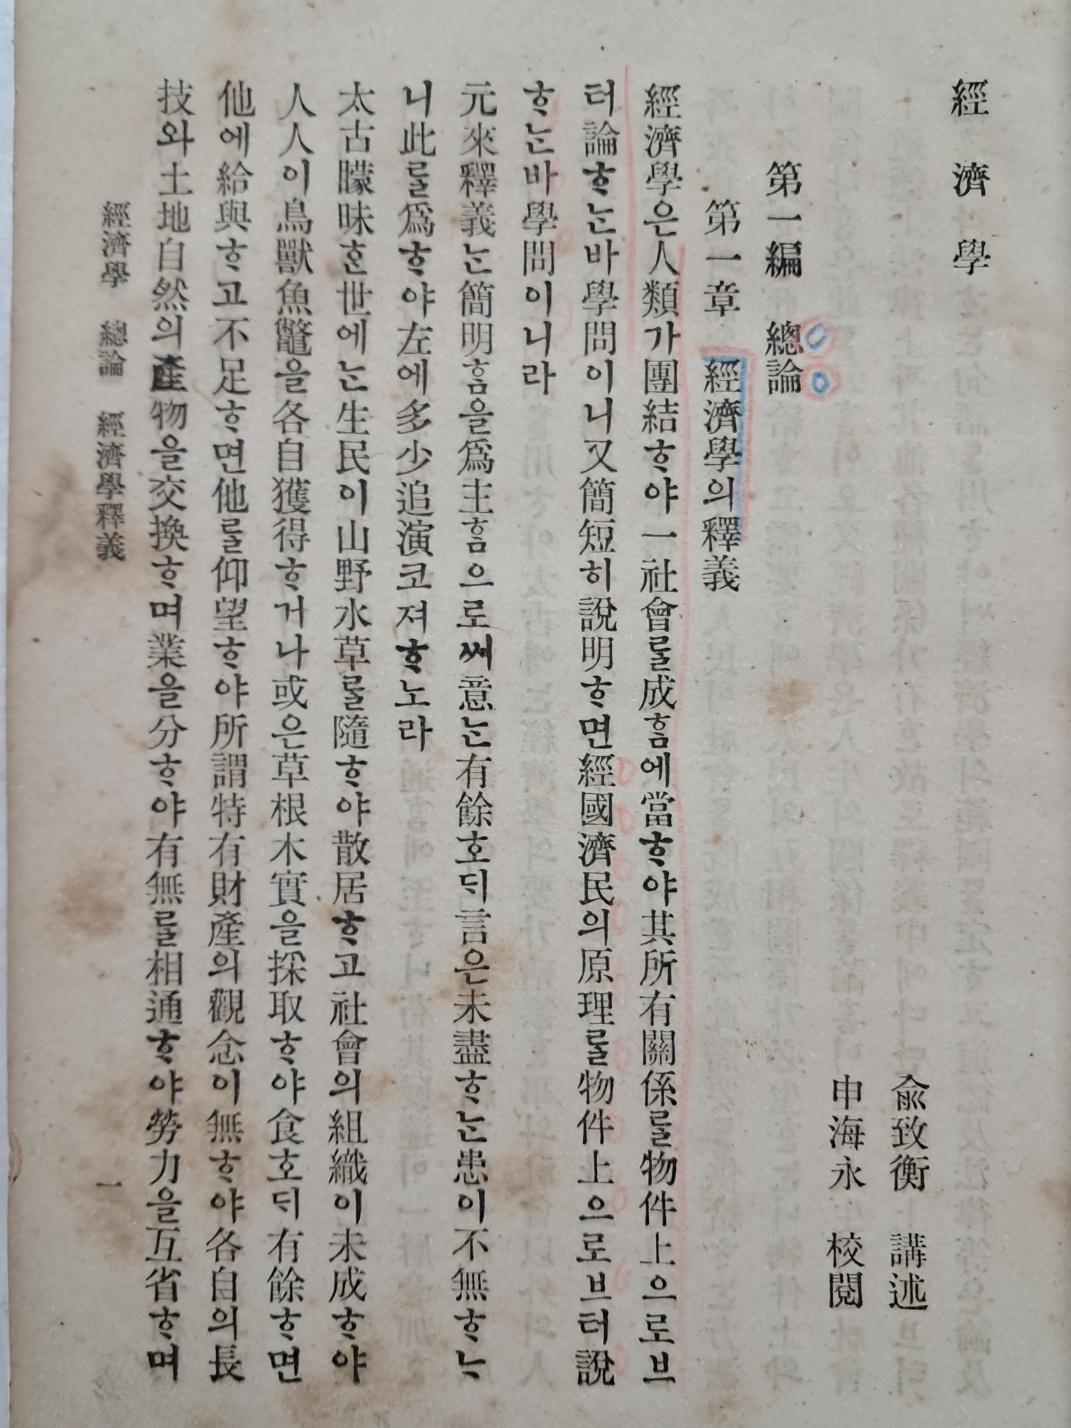 經濟學
兪致衡 講述
申海永 校閱
第一編 總論
第一章 經濟學의釋義
經濟學은人類가團結ᄒᆞ야一社會를成ᄒᆞᆷ에當ᄒᆞ야其所有關係를物件上으로브
터論ᄒᆞᄂᆞᆫ바學問이니又簡短히說明ᄒᆞ면經國濟民의原理를物件上으로브터說
ᄒᆞᄂᆞᆫ바學問이니라
元來釋義ᄂᆞᆫ簡明ᄒᆞᆷ을爲主ᄒᆞᆷ으로ᄡᅥ意ᄂᆞᆫ有餘호ᄃᆡ言은未盡ᄒᆞᄂᆞᆫ患이不無ᄒᆞᄂᆞ
니此를爲ᄒᆞ야左에多少追演코져ᄒᆞ노라
太古朦昧ᄒᆞᆫ世에ᄂᆞᆫ生民이山野水草를隨ᄒᆞ야散居ᄒᆞ고社會의組織이未成ᄒᆞ야
人人이鳥獸魚鼈을各自獲得ᄒᆞ거나或은草根木實을採取ᄒᆞ야食호ᄃᆡ有餘ᄒᆞ면
他에給與ᄒᆞ고不足ᄒᆞ면他를仰望ᄒᆞ야所謂特有財產의觀念이無ᄒᆞ야各自의長
技와土地自然의產物을交換ᄒᆞ며業을分ᄒᆞ야有無를相通ᄒᆞ야勞力을互省ᄒᆞ며
經濟學 總論 經濟學釋義 一